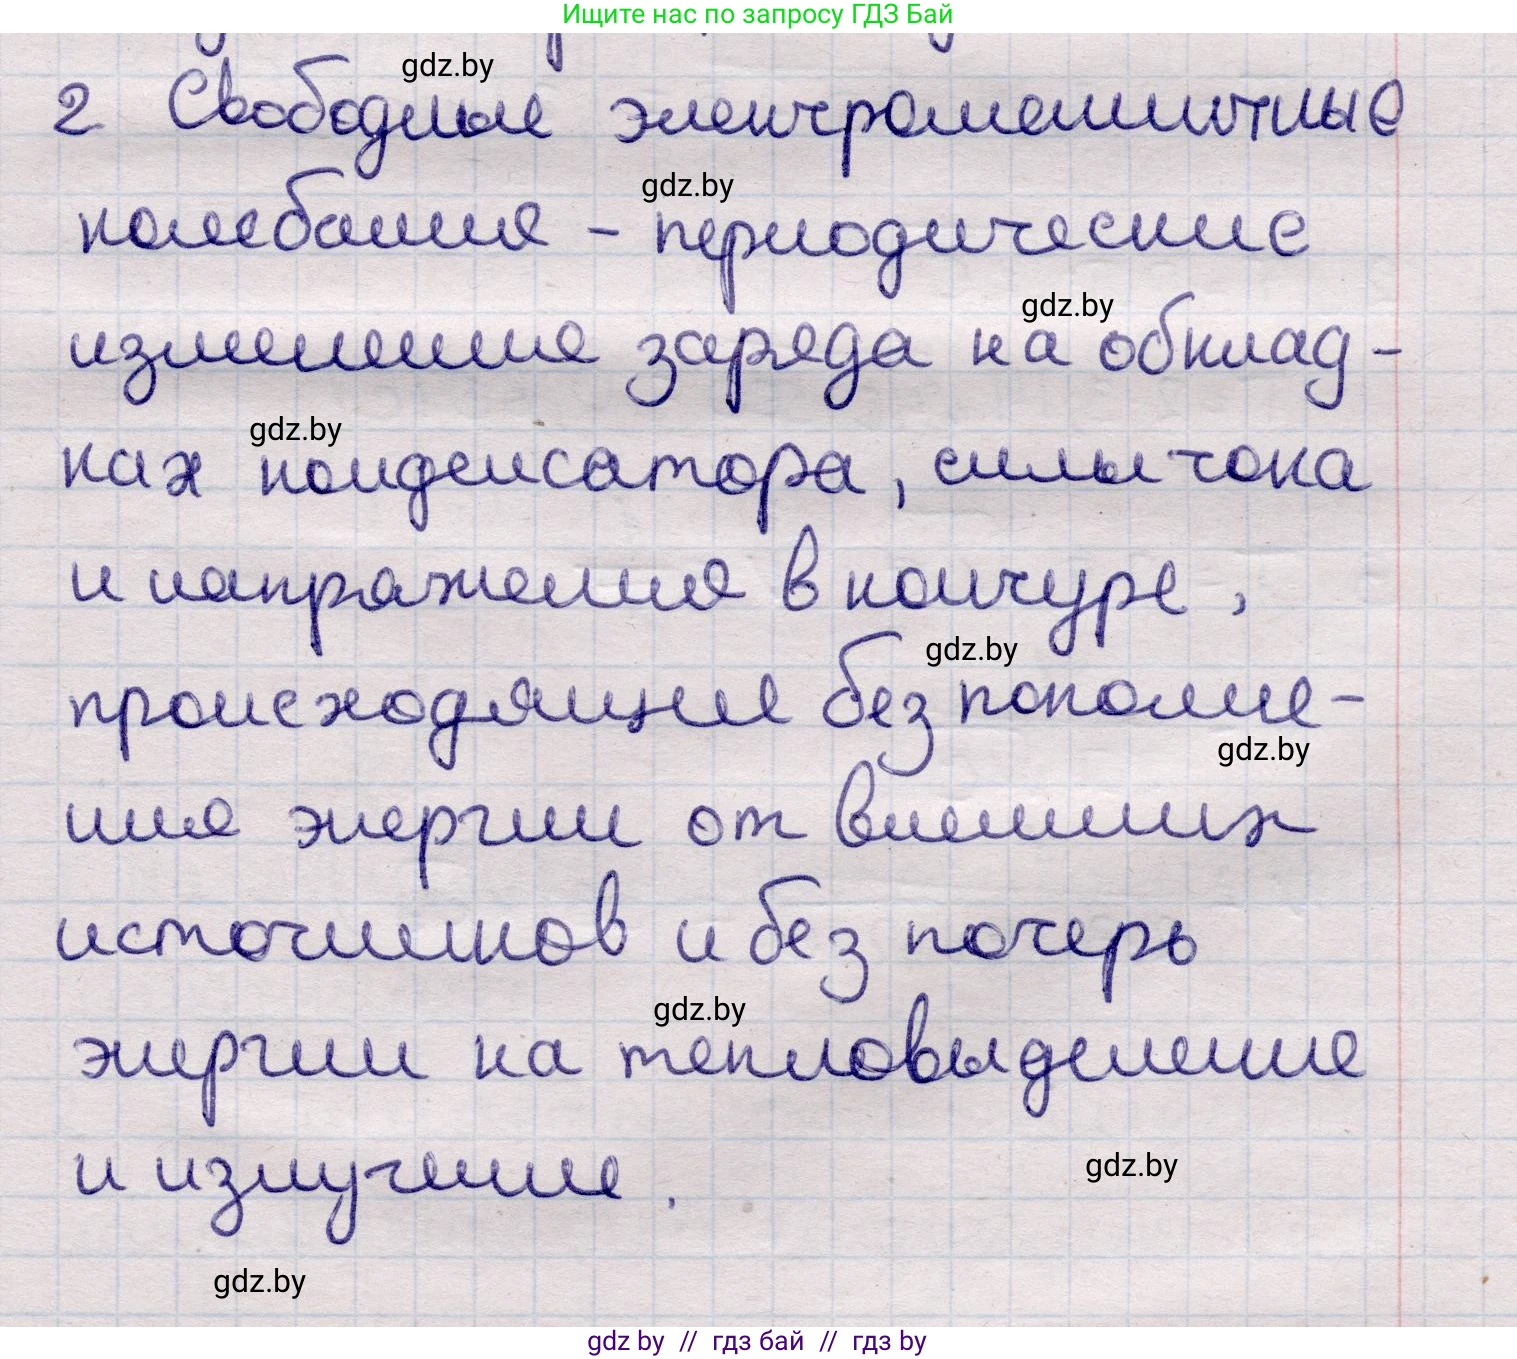 Ищите нас по запросу ГДЗ Бай
gdz.by
2 Свободные электромагнитные
gdz.by
колебания - периодические
gdz.by
изменения заряда на обклад-
gdz.by
ках конденсатора, силы тока
и напряжения в контуре,
gdz.by
происходящие без пополне-
gdz.by
ния энергии от внешних
источников и без потерь
gdz.by
энергии на тепловыделение
и излучение.
gdz.by
gdz.by
gdz by // гдз бай // гдз by